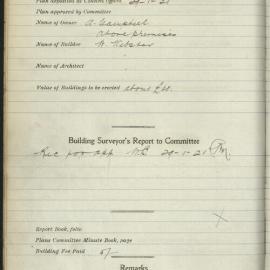 Plan deposited at Council Offices 29-1-21
Plan approved by Committee
Name of Owner A.
above premises
Name of Builder W. Webster
Name of Architect
Value of Buildings to be erected about £60.
Building Surveyor's Report to Committee
Rec for app 29-1-21
Report Book, folio
Plans Committee Minute Book, page
Building Fee Paid 5/-
Remarks